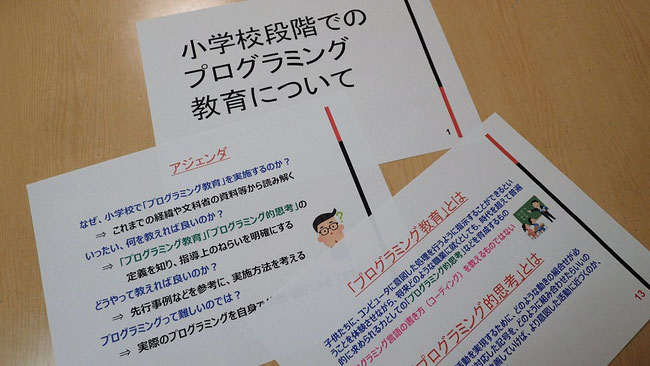 小学校段階での
プログラミング
教育について
1
アジェンダ
なぜ、小学校で「プログラミング教育」を実施するのか?
⇒ これまでの経緯や文科省の資料等から読み解く
いったい、何を教えれば良いのか?
⇒ 「プログラミング教育」「プログラミング的思考」の
定義を知り、指導上のねらいを明確にする
どうやって教えれば良いのか?
⇒ 先行事例などを参考に、実施方法を考える
プログラミングって難しいのでは?
⇒ 実際のプログラミングを自身で
「プログラミング教育」とは
子供たちに、コンピュータに意図した処理を行うよう指示することができるとい
うことを体験させながら、将来どのような職業に就くとしても、時代を超えて普遍
的に求められる力としての「プログラミング的思考」などを育成するもの
ログラミング言語の書き方（コーディング）を教えるものではない
プログラミング的思考」とは
活動を実現するために、どのような動きの組合せが必
対応した記号を、どのように組み合わせたらいいの
善していけば、より意図した活動に近づくのか、
13